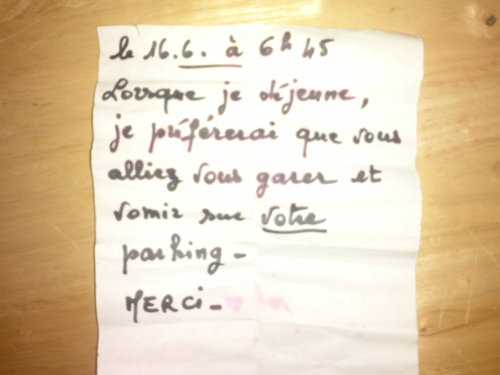 le 16.6. à 6h45
Lorsque je déjeune,
je préférerai que vous
alliez vous garer et
vomir sur votre
parking -
MERCi -